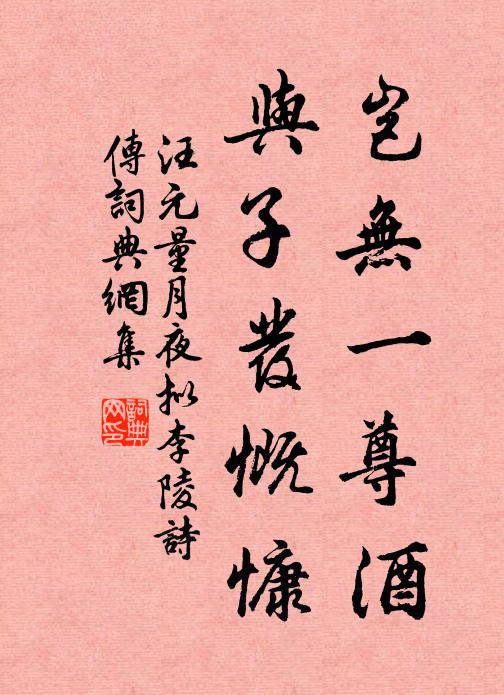 豈無一尊酒
與子發慨慷
汪元量月夜拟李陵詩
傳詞典網集
詞典
网印